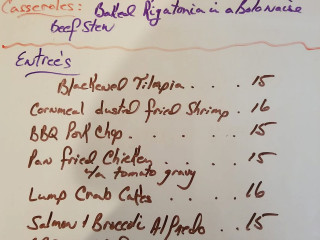 Casseroles: Baked Rigatonia in a Bolonaise
Beef Stew
Entree's
Blackened Tilapia . . . 15
Cornmeal dusted fried Shrimp . 16
BBQ Pork Chop . . . . . 15
Pan fried Chicken . . . . 15
w/a tomato gravy
Lump Crab Cakes . . . 16
Salmon & Broccoli Alfredo . . 15